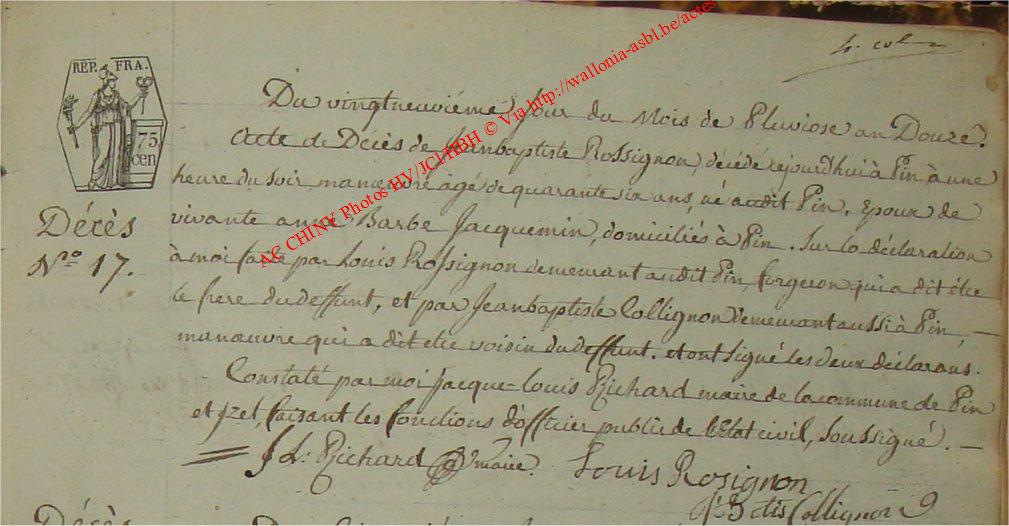 4. col
RÉP. FRA.
75
cen
Du vingtneuviéme jour du Mois de Pluviose an Douze.
Acte de Décès de Jeanbaptiste Rossignon, décédé cejourd'hui à Pin à une
heure du soir manœuvre âgé de quarante six ans, né audit Pin, Epoux de
vivante anne Barbe Jacquemin, domiciliés à Pin. Sur la déclaration
à moi faite par Louis Rossignon demeurant audit Pin forgeron qui a dit être
le frere du deffunt, et par Jeanbaptiste Collignon demeurant aussi à Pin,
manœuvre qui a dit etre voisin du deffunt. et ont signé les deux déclarans.
Constaté par moi Jacque-Louis Richard maire de la commune de Pin
et Izel, faisant les fonctions d'officier public de l'Etat civil, Soussigné.
Décès
Nro 17.
J L: Richard maire. Louis Rosignon
J B tis Collignon
Décès
AC CHINY Photos HV/JCJ/HBH © Via http://wallonia-asbl.be/actes